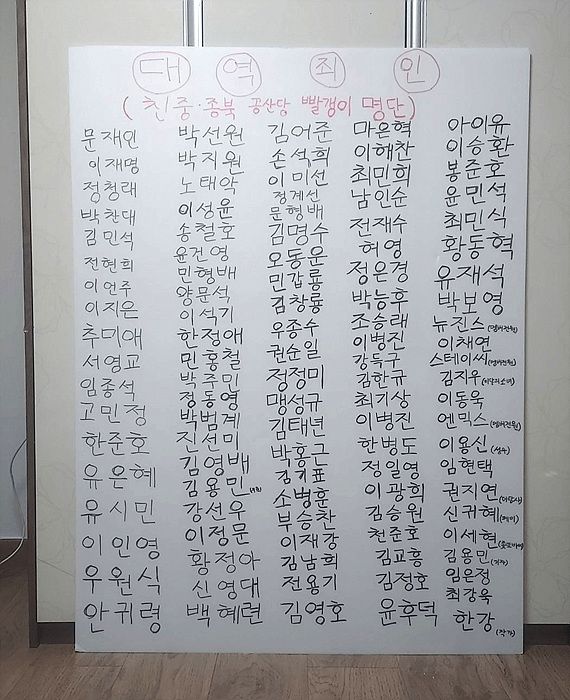 대역죄인
(친중·종북 공산당 빨갱이 명단)
문재인
이재명
정청래
박찬대
김민석
전현희
이언주
이지은
추미애
서영교
임종석
고민정
한준호
유은혜
유시민
이인영
우원식
안귀령
박선원
박지원
노태악
이성윤
송철호
윤건영
민형배
양문석
이석기
한정애
민홍철
박주민
정동영
박범계
진선미
김영배
김용민
강선우
이정문
황정아
신영대
백혜련
김어준
손석희
이미선
정계선
문형배
김명수
오동운
민갑룡
김창룡
우종수
권순일
정정미
맹성규
김태년
박홍근
김기표
소병훈
부승찬
이재강
김남희
전용기
김영호
마은혁
이해찬
최민희
남인순
전재수
허영
정은경
박능후
조승래
이병진
강득구
김한규
최기상
이병진
한병도
정일영
이광희
김승원
천준호
김교흥
김정호
윤후덕
아이유
이승환
봉준호
윤민석
최민식
황동혁
유재석
박보영
뉴진스(멤버전원)
이채연
스테이씨(멤버전원)
김지우(이달의소녀)
이동욱
엔믹스(멤버전원)
이용신(성우)
임현택
권지연(더탐사)
신귀혜
이세현
김용민
임은정
최강욱
한강(작가)